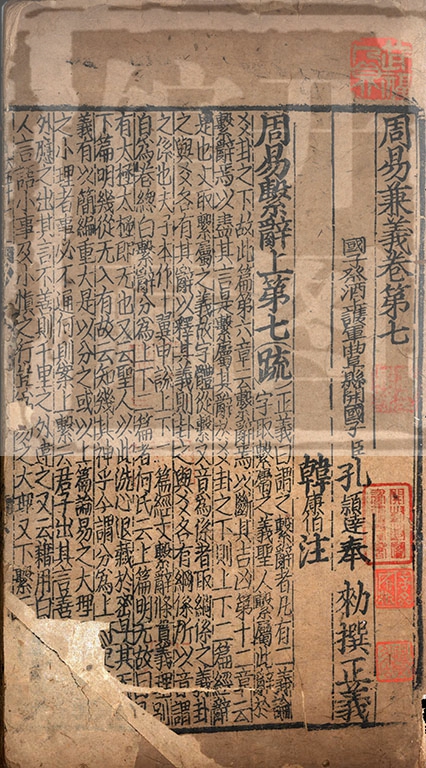 周易兼義卷第七
國子祭酒護軍曲阜縣開國子臣孔穎達奉 勅撰正義
韓康伯注
周易繫辭上第七 疏 正義曰謂之繫辭者凡有二義論
字取繫屬之義聖人繫屬此辭於
爻卦之下故此篇第六章云繫辭焉以斷其吉凶第十二章云
繫辭焉以盡其言是繫屬其辭於爻卦之下則上下二篇經辭
是也文取繫屬之義故字體從繫又音爲係者取綱係之義卦
之與爻各有其辭以釋其義則卦之與爻各有綱係所以音謂
之係也夫子本作十翼申說上下二篇經文繫辭條貫義理別
自爲卷總曰繫辭分爲上下二篇者何氏云上篇明无故曰易
有太極太極即无也又云聖人以此洗心退藏於密是其无
下篇明幾從无入有故云知幾其神乎今謂分爲上
義有以簡編重大是以分之或以上篇論易之大理
之小理者事必不通何則案上繫云君子出其言善
外應之出其言不善則千里之外違之又云藉用白
人言語小事及小慎之行 大理又下繫